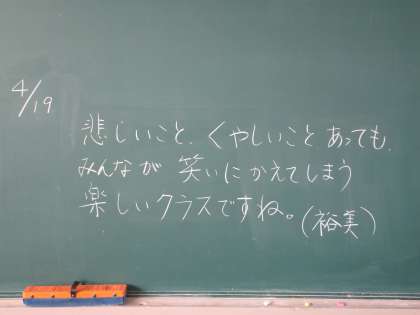 4/19
悲しいこと、くやしいことあっても、
みんなが笑いにかえてしまう
楽しいクラスですね。(裕美)